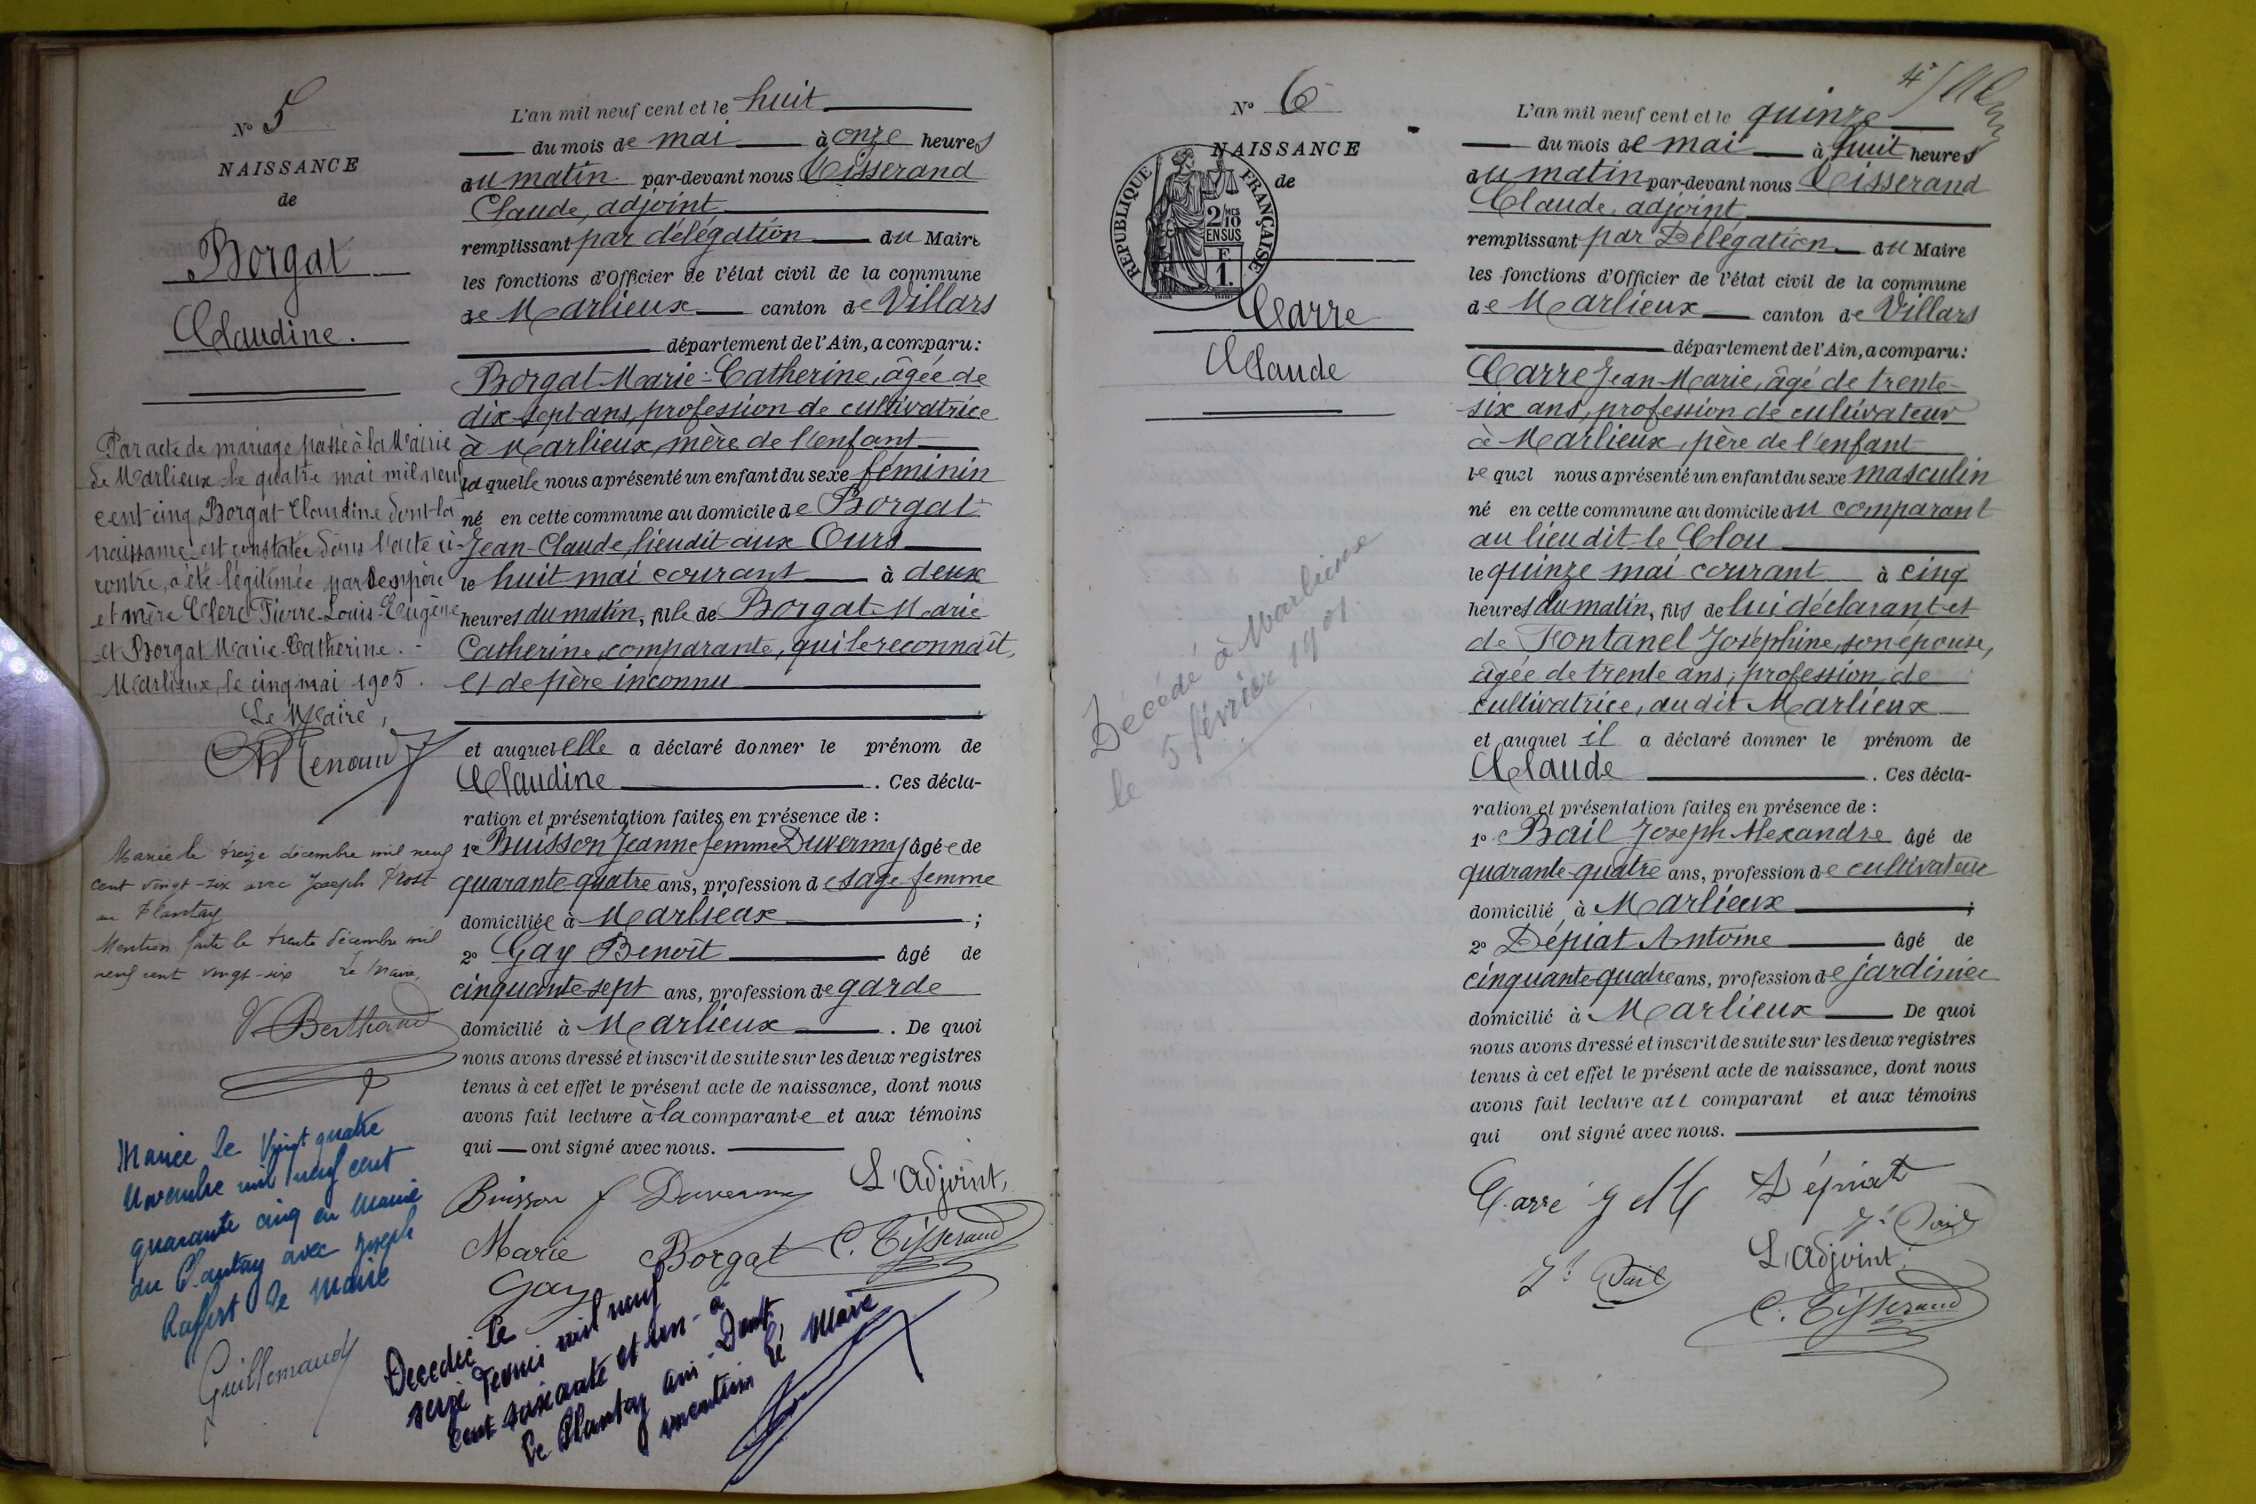 N° 5
NAISSANCE
de
Borgat
Claudine.
Par acte de mariage passé à la Mairie
de Marlieux le quatre mai mil neuf
cent cinq Borgat Claudine dont la
naissance est constatée dans l'acte ci-
contre, a été légitimée par père
et mère Clerc Pierre-Louis-Eugène
et Borgat Marie-Catherine. -
Marlieux, le cinq mai 1905.
Le Maire,
Mariée le treize décembre mil neuf
cent vingt-six avec Joseph Prost
au Plantay
Mention faite le trente décembre mil
neuf cent vingt-six Le Maire,
V. Berthaud
Mariée le vingt quatre
Novembre mil neuf cent
quarante cinq en Mairie
du Plantay avec Joseph
le Maire
Guillemaud
L'an mil neuf cent et le huit
du mois de mai à onze heures
du matin par-devant nous Tisserand
Claude, adjoint
remplissant par délégation du Maire
les fonctions d'Officier de l'état civil de la commune
de Marlieux canton de Villars
département de l'Ain, a comparu:
Borgat Marie-Catherine, âgée de
dix-sept ans, profession de cultivatrice
à Marlieux, mère de l'enfant
laquelle nous a présenté un enfant du sexe féminin
né en cette commune au domicile de Borgat
Jean-Claude, lieu dit aux Ours
le huit mai courant à deux
heures du matin, fille de Borgat Marie
Catherine, comparante, qui le reconnaît,
et de père inconnu
et auquel elle a déclaré donner le prénom de
Claudine . Ces décla-
ration et présentation faites en présence de :
1° Buisson Jeanne femme Duvernay âgée de
quarante-quatre ans, profession de sage-femme
domiciliée à Marlieux ;
2° Gay Benoît âgé de
cinquante-sept ans, profession de garde
domicilié à Marlieux . De quoi
nous avons dressé et inscrit de suite sur les deux registres
tenus à cet effet le présent acte de naissance, dont nous
avons fait lecture à la comparante et aux témoins
qui ont signé avec nous.
Buisson f Duvernay L'adjoint,
Marie Borgat C. Tisserand
Gay
Décédée le
seize Février mil neuf
cent soixante et un - à
le Plantay Ain - Dont
mention le Maire
N° 6
NAISSANCE
de
REPUBLIQUE FRANÇAISE
2/10 MES
EN SUS
F
1.
Carre
Claude
Décédé à Marlieux
le 5 février 1901.
4
L'an mil neuf cent et le quinze
du mois de mai à huit heures
du matin par-devant nous Tisserand
Claude, adjoint
remplissant par Délégation du Maire
les fonctions d'Officier de l'état civil de la commune
de Marlieux canton de Villars
département de l'Ain, a comparu:
Carre Jean-Marie, âgé de trente-
six ans, profession de cultivateur
à Marlieux, père de l'enfant
lequel nous a présenté un enfant du sexe masculin
né en cette commune au domicile du comparant
au lieu dit le Clou
le quinze mai courant à cinq
heures du matin, fils de lui déclarant et
de Fontanel Joséphine, son épouse,
âgée de trente ans, profession de
cultivatrice, audit Marlieux
et auquel il a déclaré donner le prénom de
Claude . Ces décla-
ration et présentation faites en présence de :
1° Bail Joseph Alexandre âgé de
quarante-quatre ans, profession de cultivateur
domicilié à Marlieux ;
2° Dépiat Antoine âgé de
cinquante-quatre ans, profession de jardinier
domicilié à Marlieux De quoi
nous avons dressé et inscrit de suite sur les deux registres
tenus à cet effet le présent acte de naissance, dont nous
avons fait lecture au comparant et aux témoins
qui ont signé avec nous.
Carré J M Dépiat
L'adjoint,
C. Tisserand